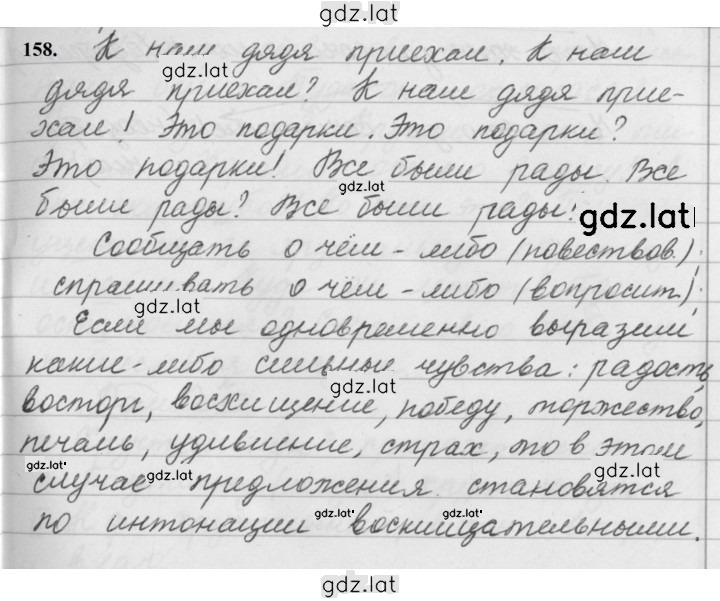 gdz.lat
158. К нам дядя приехал. К нам
gdz.lat
дядя приехал? К нам дядя прие-
gdz.lat
хал! Это подарки. Это подарки?
Это подарки! Все были рады. Все
gdz.lat
были рады? Все были рады!
gdz.lat
Сообщать о чём-либо (повествов.);
спрашивать о чём-либо (вопросит.);
gdz.lat
Если мы одновременно выразили
какие-либо сильные чувства: радость,
gdz.lat
восторг, восхищение, победу, торжество,
печаль, удивление, страх, то в этом
gdz.lat gdz.lat
случае предложения становятся
gdz.lat gdz.lat
по интонации восклицательными.
gdz.lat